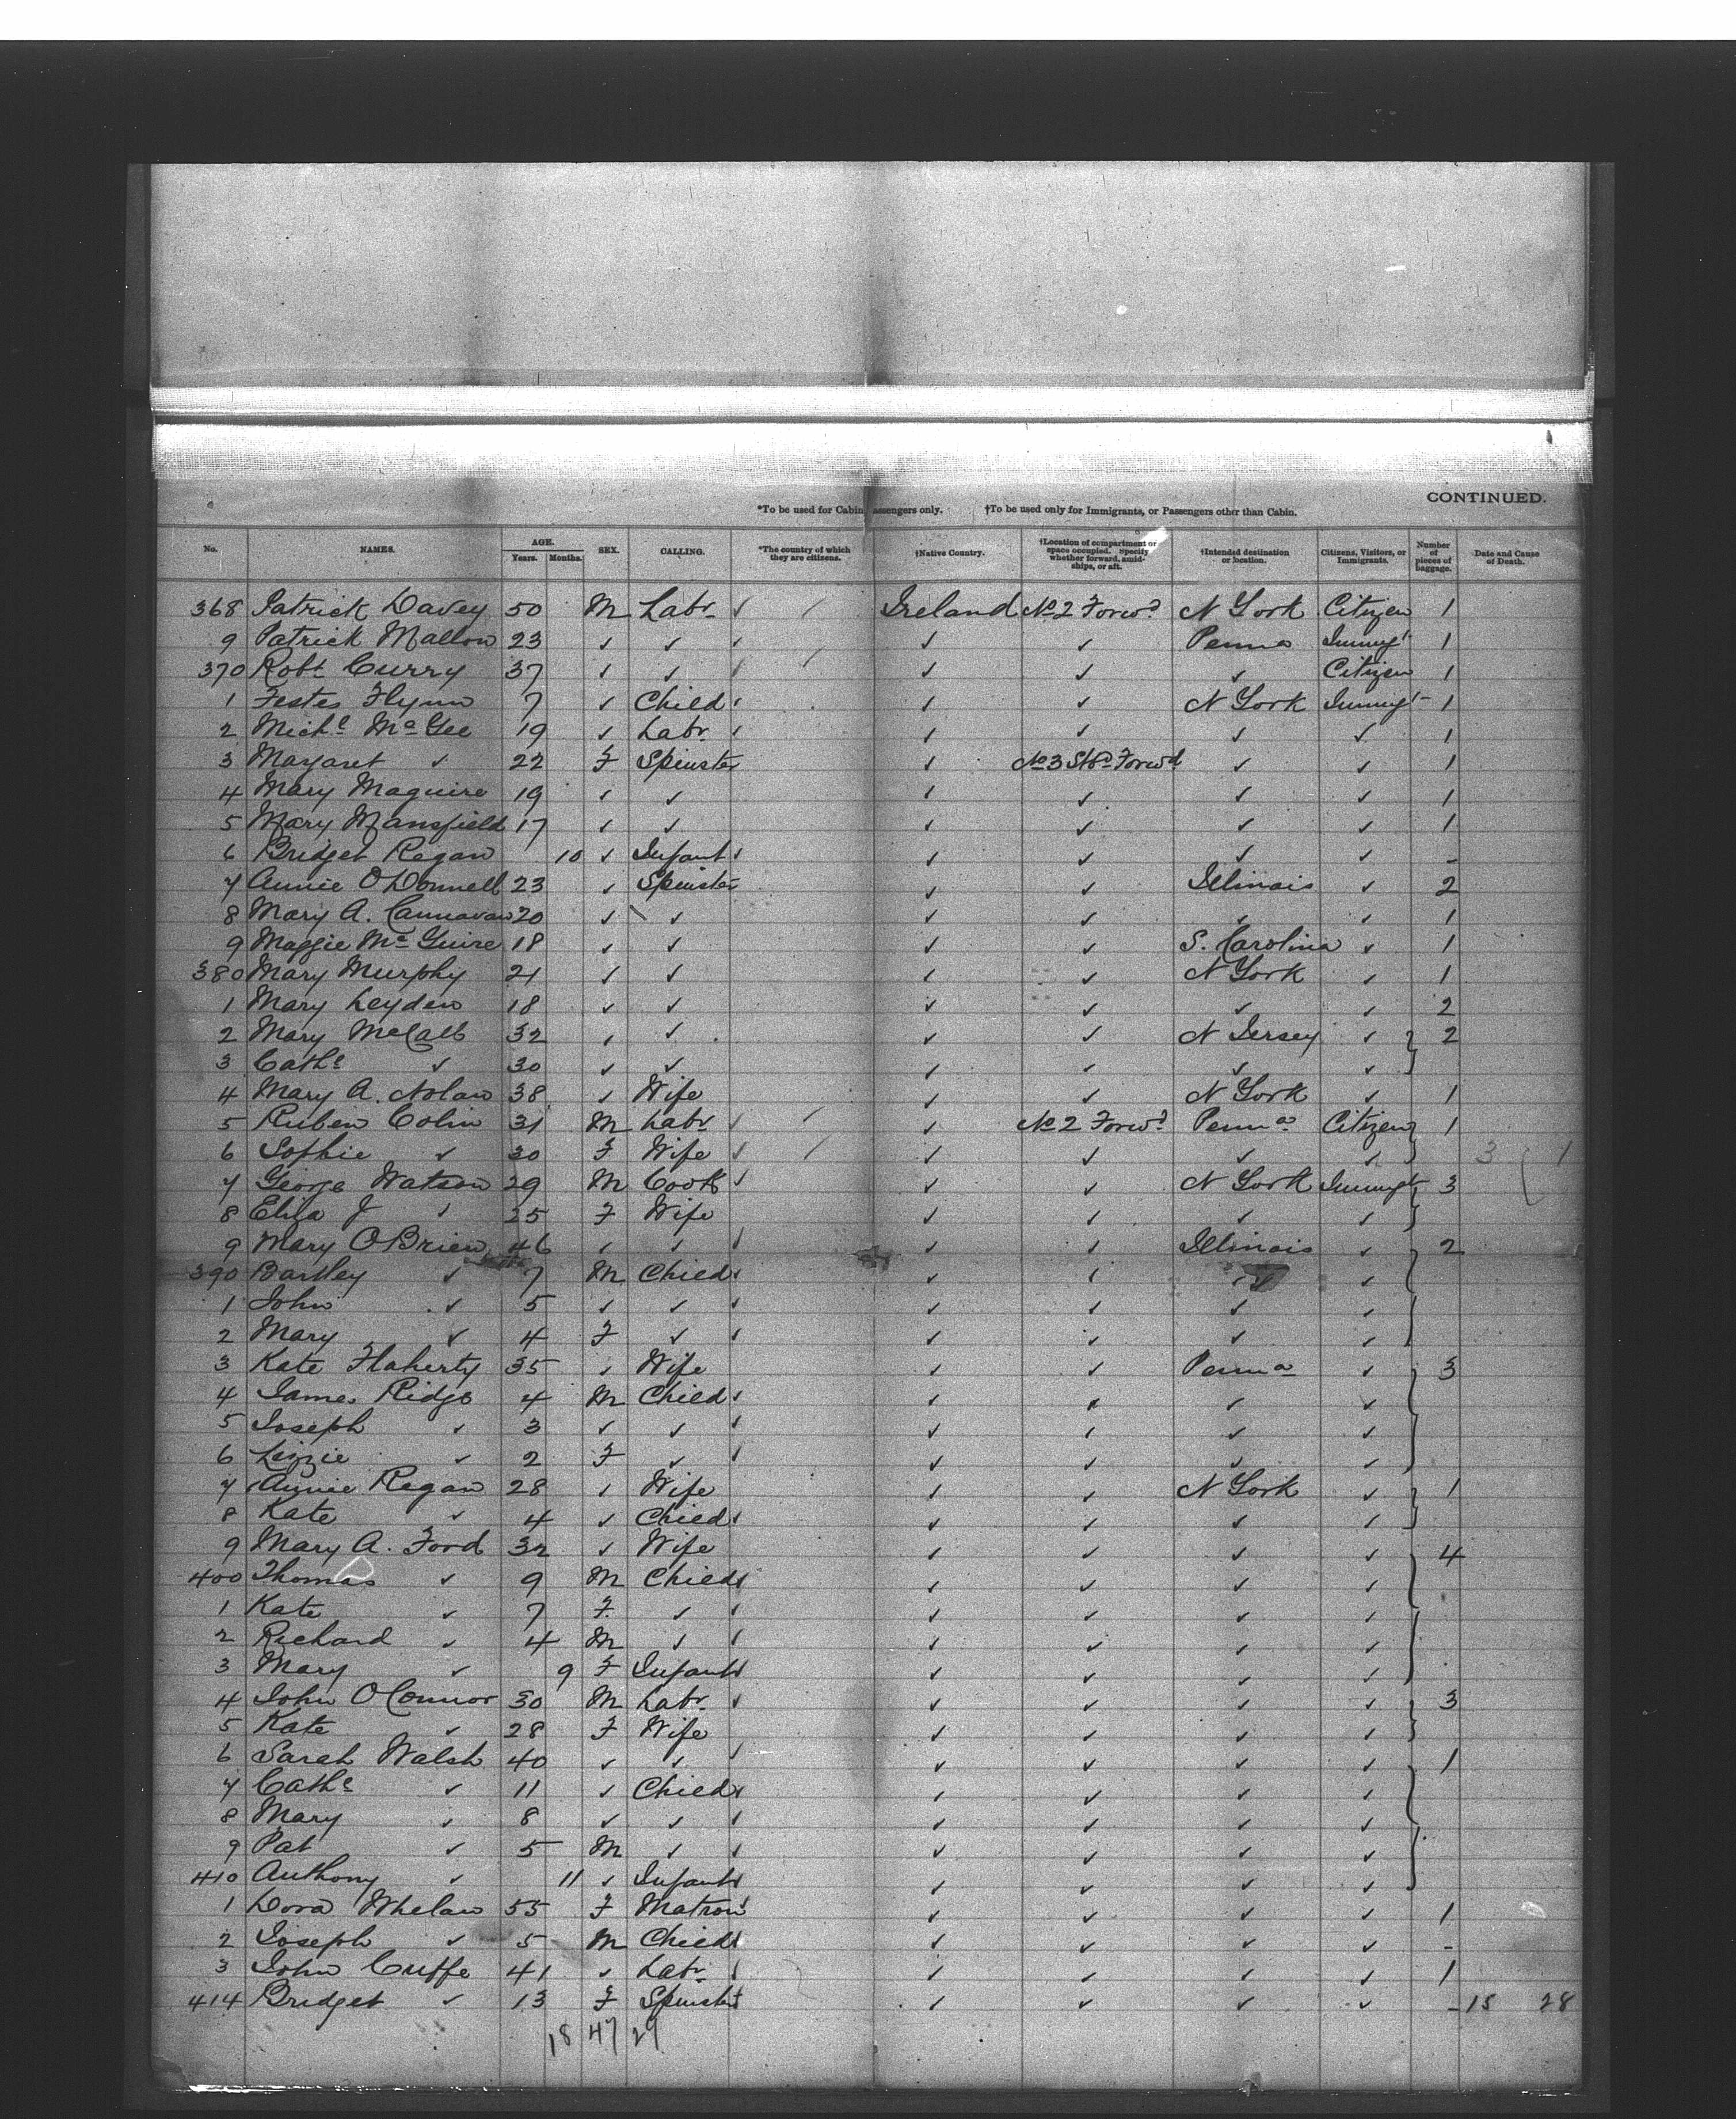 CONTINUED.
*To be used for Cabin Passengers only. †To be used only for Immigrants, or Passengers other than Cabin.
No. NAMES. AGE. Years. Months. SEX. CALLING. *The country of which they are citizens. †Native Country. †Location of compartment or space occupied. Specify whether forward, amidships, or aft. †Intended destination or location. Citizens, Visitors, or Immigrants. Number of pieces of baggage. Date and Cause of Death.
368 Patrick Davey 50 M Labr ✓ Ireland No 2 Forwd N York Citizen 1
9 Patrick Mallon 23 ✓ ✓ ✓ ✓ ✓ Penna Immigt 1
370 Robt Curry 37 ✓ ✓ ✓ ✓ ✓ ✓ Citizen 1
1 Festes Flynn 7 ✓ Child ✓ ✓ ✓ N York Immigt 1
2 Michl McGee 19 ✓ Labr ✓ ✓ ✓ ✓ ✓ 1
3 Margaret ✓ 22 F Spinster ✓ No 3 Stbd Forwd ✓ ✓ 1
4 Mary Maguire 19 ✓ ✓ ✓ ✓ ✓ ✓ 1
5 Mary Mansfield 17 ✓ ✓ ✓ ✓ ✓ ✓ 1
6 Bridget Regan 10 ✓ Infant ✓ ✓ ✓ ✓ ✓ -
7 Annie O'Donnell 23 ✓ Spinster ✓ ✓ Illinois ✓ 2
8 Mary A. Cannavan 20 ✓ ✓ ✓ ✓ ✓ ✓ 1
9 Maggie McGuire 18 ✓ ✓ ✓ ✓ S. Carolina ✓ 1
380 Mary Murphy 21 ✓ ✓ ✓ ✓ N York ✓ 1
1 Mary Leyden 18 ✓ ✓ ✓ ✓ ✓ ✓ 2
2 Mary McCalb 32 ✓ ✓ ✓ ✓ N Jersey ✓ 2
3 Cathe ✓ 30 ✓ ✓ ✓ ✓ ✓ ✓
4 Mary A. Nolan 38 ✓ Wife ✓ ✓ N York ✓ 1
5 Ruben Colin 31 M Labr ✓ ✓ No 2 Forwd Penna Citizen 1
6 Sophie ✓ 30 F Wife ✓ ✓ ✓ ✓ ✓ 3 1
7 George Watson 29 M Cook ✓ ✓ ✓ N York Immigt 3
8 Eliza J ✓ 25 F Wife ✓ ✓ ✓ ✓
9 Mary O'Brien 46 ✓ ✓ ✓ ✓ ✓ Illinois ✓ 2
390 Bartley ✓ 7 M Child ✓ ✓ ✓ ✓ ✓
1 John ✓ 5 ✓ ✓ ✓ ✓ ✓ ✓ ✓
2 Mary ✓ 4 F ✓ ✓ ✓ ✓ ✓ ✓
3 Kate Flaherty 35 ✓ Wife ✓ ✓ Penna ✓ 3
4 James Ridge 4 M Child ✓ ✓ ✓ ✓ ✓
5 Joseph ✓ 3 ✓ ✓ ✓ ✓ ✓ ✓ ✓
6 Lizzie ✓ 2 F ✓ ✓ ✓ ✓ ✓ ✓
7 Annie Regan 28 ✓ Wife ✓ ✓ N York ✓ 1
8 Kate ✓ 4 ✓ Child ✓ ✓ ✓ ✓ ✓
9 Mary A. Ford 32 ✓ Wife ✓ ✓ ✓ ✓ 4
400 Thomas ✓ 9 M Child ✓ ✓ ✓ ✓ ✓
1 Kate ✓ 7 F ✓ ✓ ✓ ✓ ✓ ✓
2 Richard ✓ 4 M ✓ ✓ ✓ ✓ ✓ ✓
3 Mary ✓ 9 F Infant ✓ ✓ ✓ ✓ ✓
4 John O'Connor 30 M Labr ✓ ✓ ✓ ✓ ✓ 3
5 Kate ✓ 28 F Wife ✓ ✓ ✓ ✓
6 Sarah Walsh 40 ✓ ✓ ✓ ✓ ✓ ✓ ✓ 1
7 Cathe ✓ 11 ✓ Child ✓ ✓ ✓ ✓ ✓
8 Mary ✓ 8 ✓ ✓ ✓ ✓ ✓ ✓ ✓
9 Pat ✓ 5 M ✓ ✓ ✓ ✓ ✓ ✓
410 Anthony ✓ 11 ✓ Infant ✓ ✓ ✓ ✓ ✓
1 Dora Whelan 55 F Matron ✓ ✓ ✓ ✓ ✓ 1
2 Joseph ✓ 5 M Child ✓ ✓ ✓ ✓ ✓ -
3 John Cuffe 41 ✓ Labr ✓ ✓ ✓ ✓ ✓ 1
414 Bridget ✓ 13 F Spinster ✓ ✓ ✓ ✓ - 15 28
18 47 29